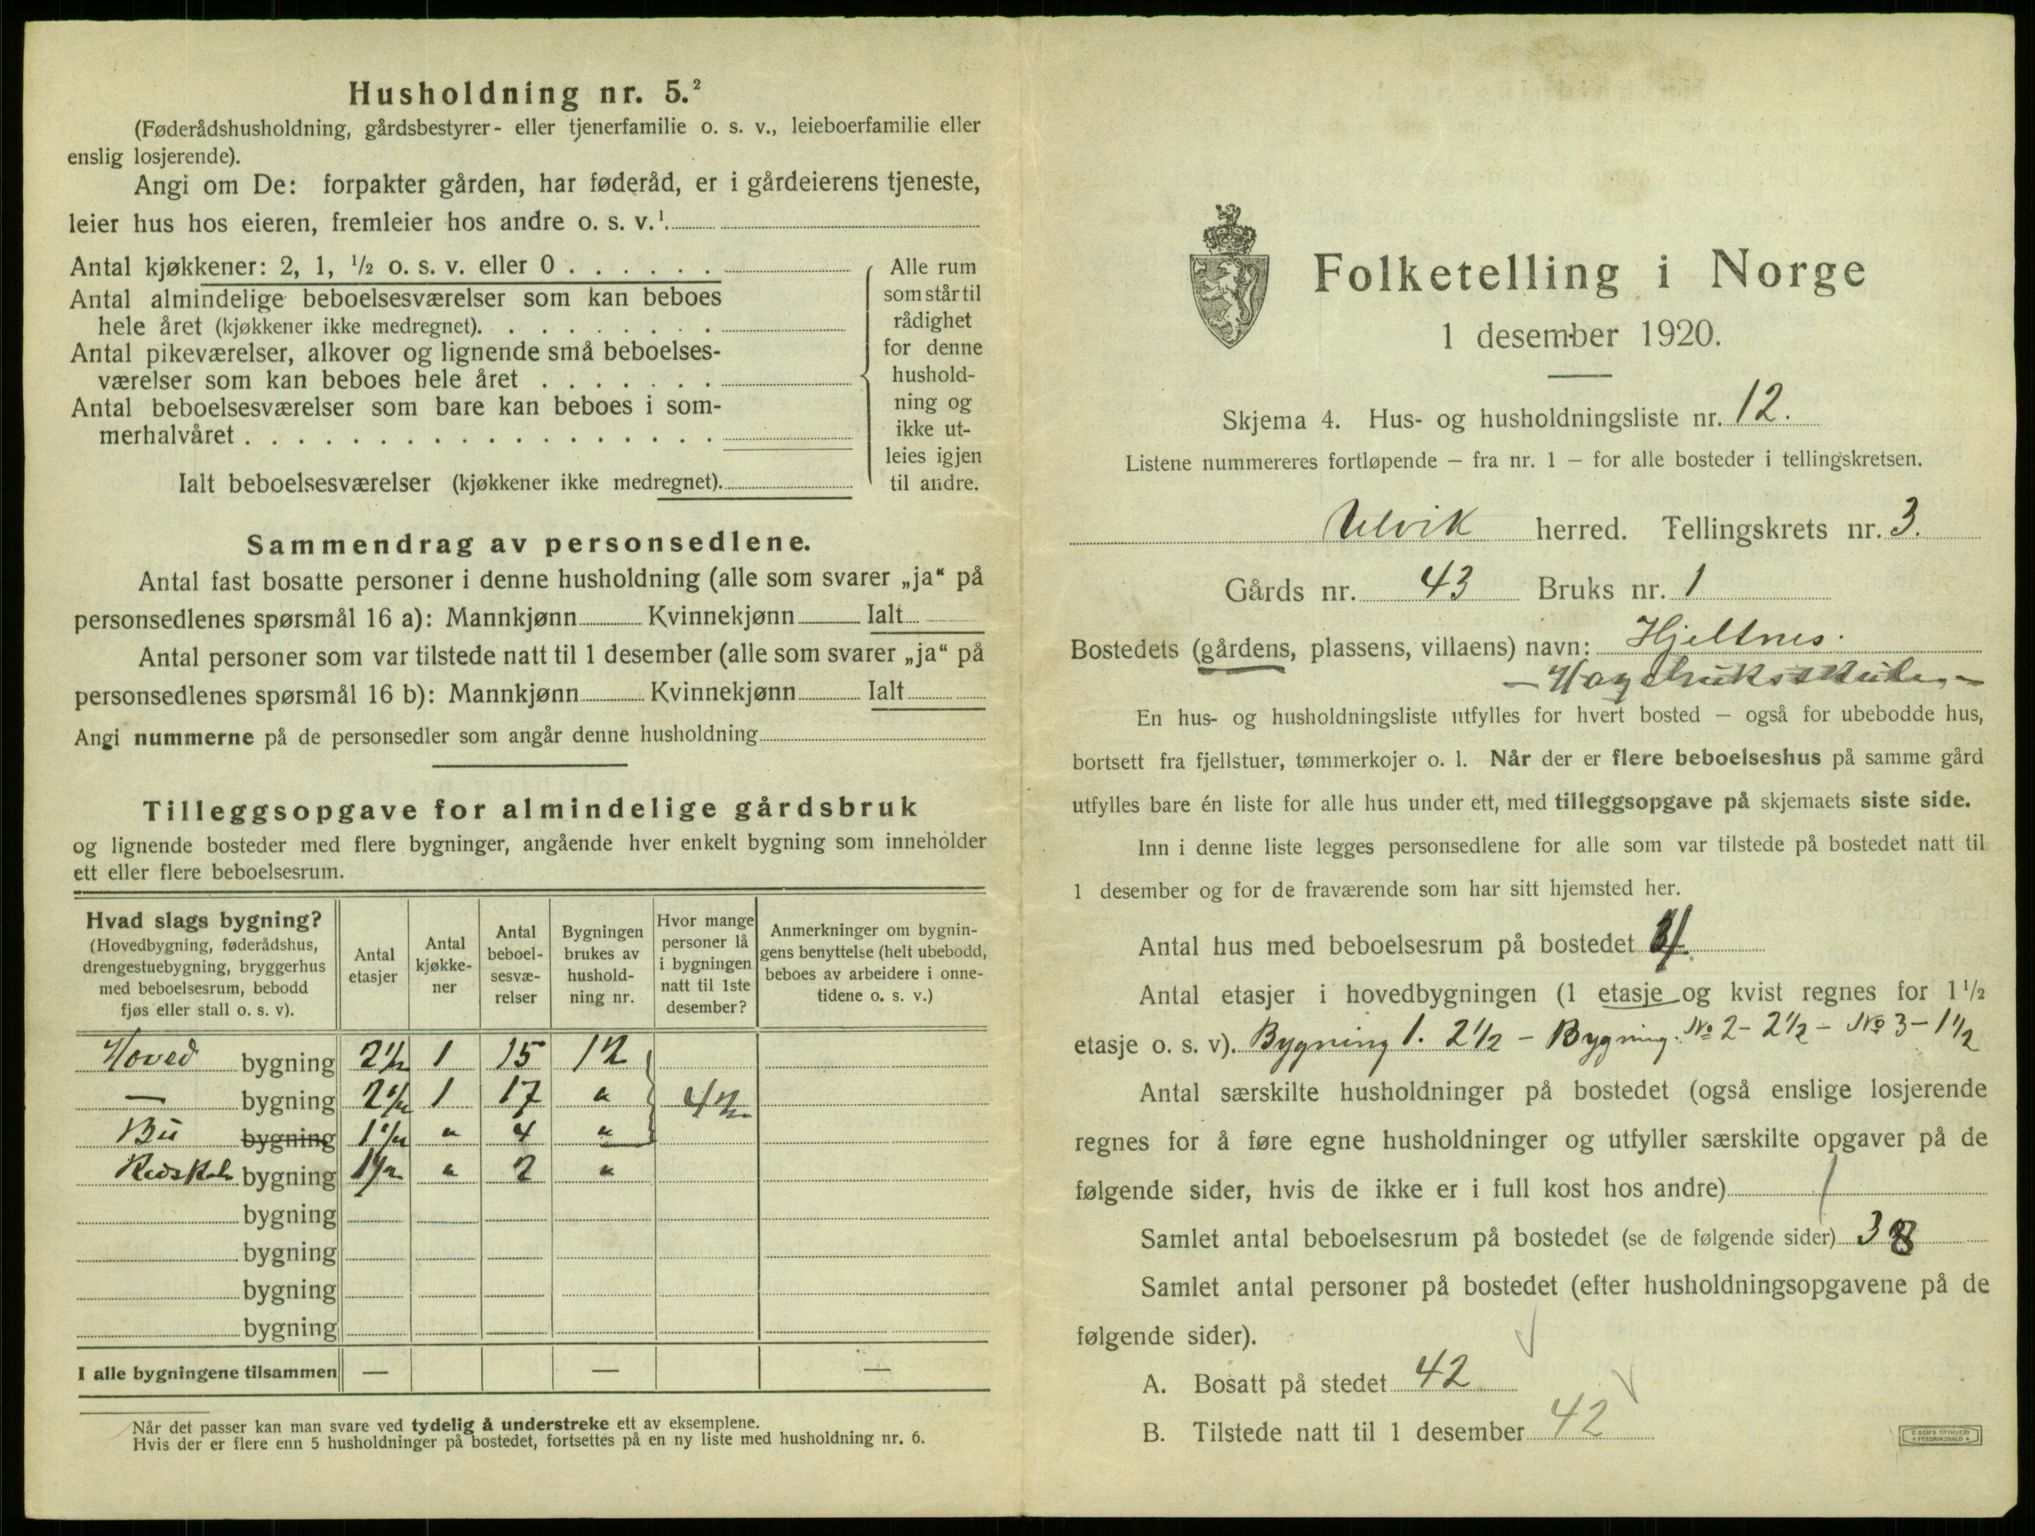 Husholdning nr. 5.²
(Føderådshusholdning, gårdsbestyrer- eller tjenerfamilie o. s. v., leieboerfamilie eller
enslig losjerende).
Angi om De: forpakter gården, har føderåd, er i gårdeierens tjeneste,
leier hus hos eieren, fremleier hos andre o. s. v.¹
Antal kjøkkener: 2, 1, ½ o. s. v. eller 0 . . . . . .
Antal almindelige beboelsesværelser som kan beboes
hele året (kjøkkener ikke medregnet). . . . . . . . .
Antal pikeværelser, alkover og lignende små beboelses-
værelser som kan beboes hele året . . . . . . .
Antal beboelsesværelser som bare kan beboes i som-
merhalvåret . . . . . . . . . . . . . . . . . .
Ialt beboelsesværelser (kjøkkener ikke medregnet).
Alle rum
som står til
rådighet
for denne
hushold-
ning og
ikke ut-
leies igjen
til andre.
Sammendrag av personsedlene.
Antal fast bosatte personer i denne husholdning (alle som svarer „ja“ på
personsedlenes spørsmål 16 a): Mannkjønn Kvinnekjønn Ialt
Antal personer som var tilstede natt til 1 desember (alle som svarer „ja“ på
personsedlenes spørsmål 16 b): Mannkjønn Kvinnekjønn Ialt
Angi nummerne på de personsedler som angår denne husholdning
Tilleggsopgave for almindelige gårdsbruk
og lignende bosteder med flere bygninger, angående hver enkelt bygning som inneholder
ett eller flere beboelsesrum.
Hvad slags bygning?
(Hovedbygning, føderådshus,
drengestuebygning, bryggerhus
med beboelsesrum, bebodd
fjøs eller stall o. s. v).
Antal
etasjer
Antal
kjøkke-
ner
Antal
beboel-
sesvæ-
relser
Bygningen
brukes av
hushold-
ning nr.
Hvor mange
personer lå
i bygningen
natt til 1ste
desember?
Anmerkninger om bygnin-
gens benyttelse (helt ubebodd,
beboes av arbeidere i onne-
tidene o. s. v.)
Hoved bygning 2½ 1 15 12
— bygning 2½ 1 17 " 42
Bu bygning 1½ " 4 "
Redskab bygning 1½ " 2 "
bygning
bygning
bygning
bygning
I alle bygningene tilsammen — — —
Når det passer kan man svare ved tydelig å understreke ett av eksemplene.
Hvis der er flere enn 5 husholdninger på bostedet, fortsettes på en ny liste med husholdning nr. 6.
Folketelling i Norge
1 desember 1920.
Skjema 4. Hus- og husholdningsliste nr. 12.
Listene nummereres fortløpende — fra nr. 1 — for alle bosteder i tellingskretsen.
Ulvik herred. Tellingskrets nr. 3.
Gårds nr. 43 Bruks nr. 1
Bostedets (gårdens, plassens, villaens) navn: Hjeltnes.
— Hagebruksskule. —
En hus- og husholdningsliste utfylles for hvert bosted — også for ubebodde hus,
bortsett fra fjellstuer, tømmerkojer o. l. Når der er flere beboelseshus på samme gård
utfylles bare én liste for alle hus under ett, med tilleggsopgave på skjemaets siste side.
Inn i denne liste legges personsedlene for alle som var tilstede på bostedet natt til
1 desember og for de fraværende som har sitt hjemsted her.
Antal hus med beboelsesrum på bostedet 4
Antal etasjer i hovedbygningen (1 etasje og kvist regnes for 1½
etasje o. s. v). Bygning 1. 2½ — Bygning. No 2 — 2½ — No 3 — 1½
Antal særskilte husholdninger på bostedet (også enslige losjerende
regnes for å føre egne husholdninger og utfyller særskilte opgaver på de
følgende sider, hvis de ikke er i full kost hos andre) 1
Samlet antal beboelsesrum på bostedet (se de følgende sider) 38
Samlet antal personer på bostedet (efter husholdningsopgavene på de
følgende sider).
A. Bosatt på stedet 42
B. Tilstede natt til 1 desember 42